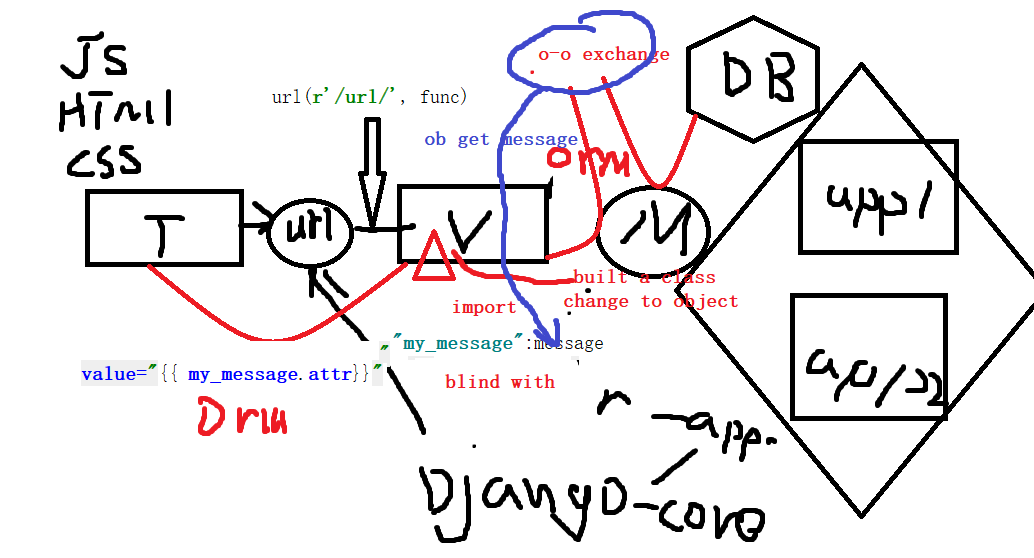 JS
HTML
CSS
url(r'/url/', func)
o-o exchange
DB
ob get message
orm
T
url
V
M
app1
built a class
change to object
import
"my_message":message
value="{{ my_message.attr}}"
blind with
app.
Django-core